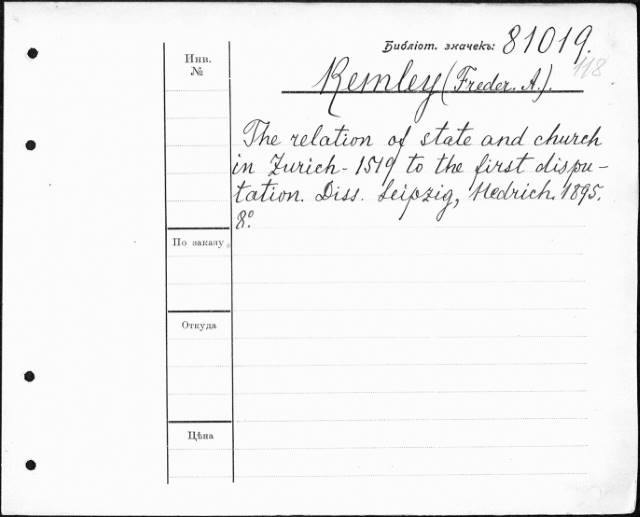 Библіот. значекъ: 81019.
118
Инв.
№
Remley (Freder. A.).
The relation of state and church
in Zurich - 1519 to the first dispu-
tation. Diss. Leipzig, Hedrich. 1895.
8º.
По заказу
Откуда
Цѣна